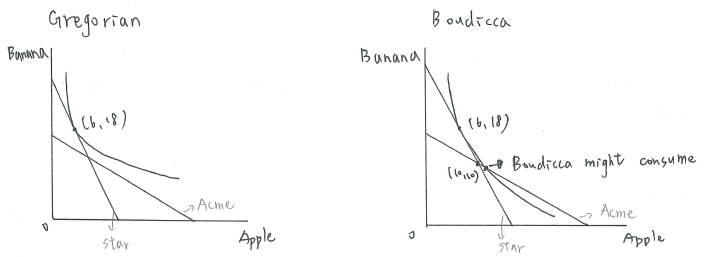 Gregorian
Banana
(6,18)
Acme
0
Star
Apple
Boudicca
Banana
(6,18)
(10,10)
Boudicca might consume
Acme
0
Star
Apple